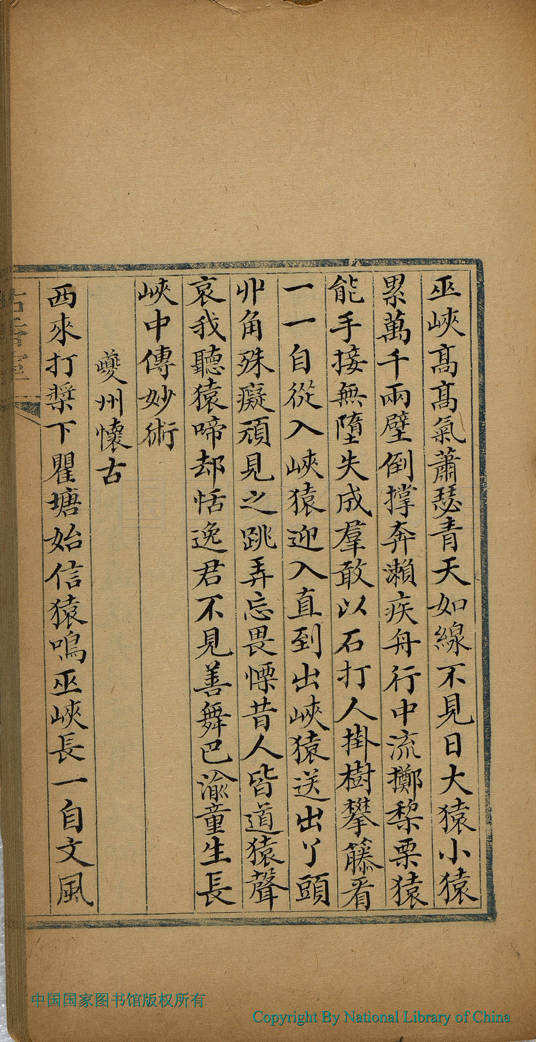 巫峽髙髙氣蕭瑟青天如線不見日大猿小猿
累萬千兩壁倒撐奔瀬疾舟行中流擲梨栗猿
能手接無墮失成羣敢以石打人掛樹攀籐看
一一自從入峽猿迎入直到出峽猿送出丫頭
丱角殊癡頑見之跳弄忘畏慄昔人皆道猿聲
哀我聽猿啼却恬逸君不見善舞巴渝童生長
峽中傳妙術
夔州懷古
西來打槳下瞿塘始信猿鳴巫峽長一自文風
中国国家图书馆版权所有
Copyright By National Library of China